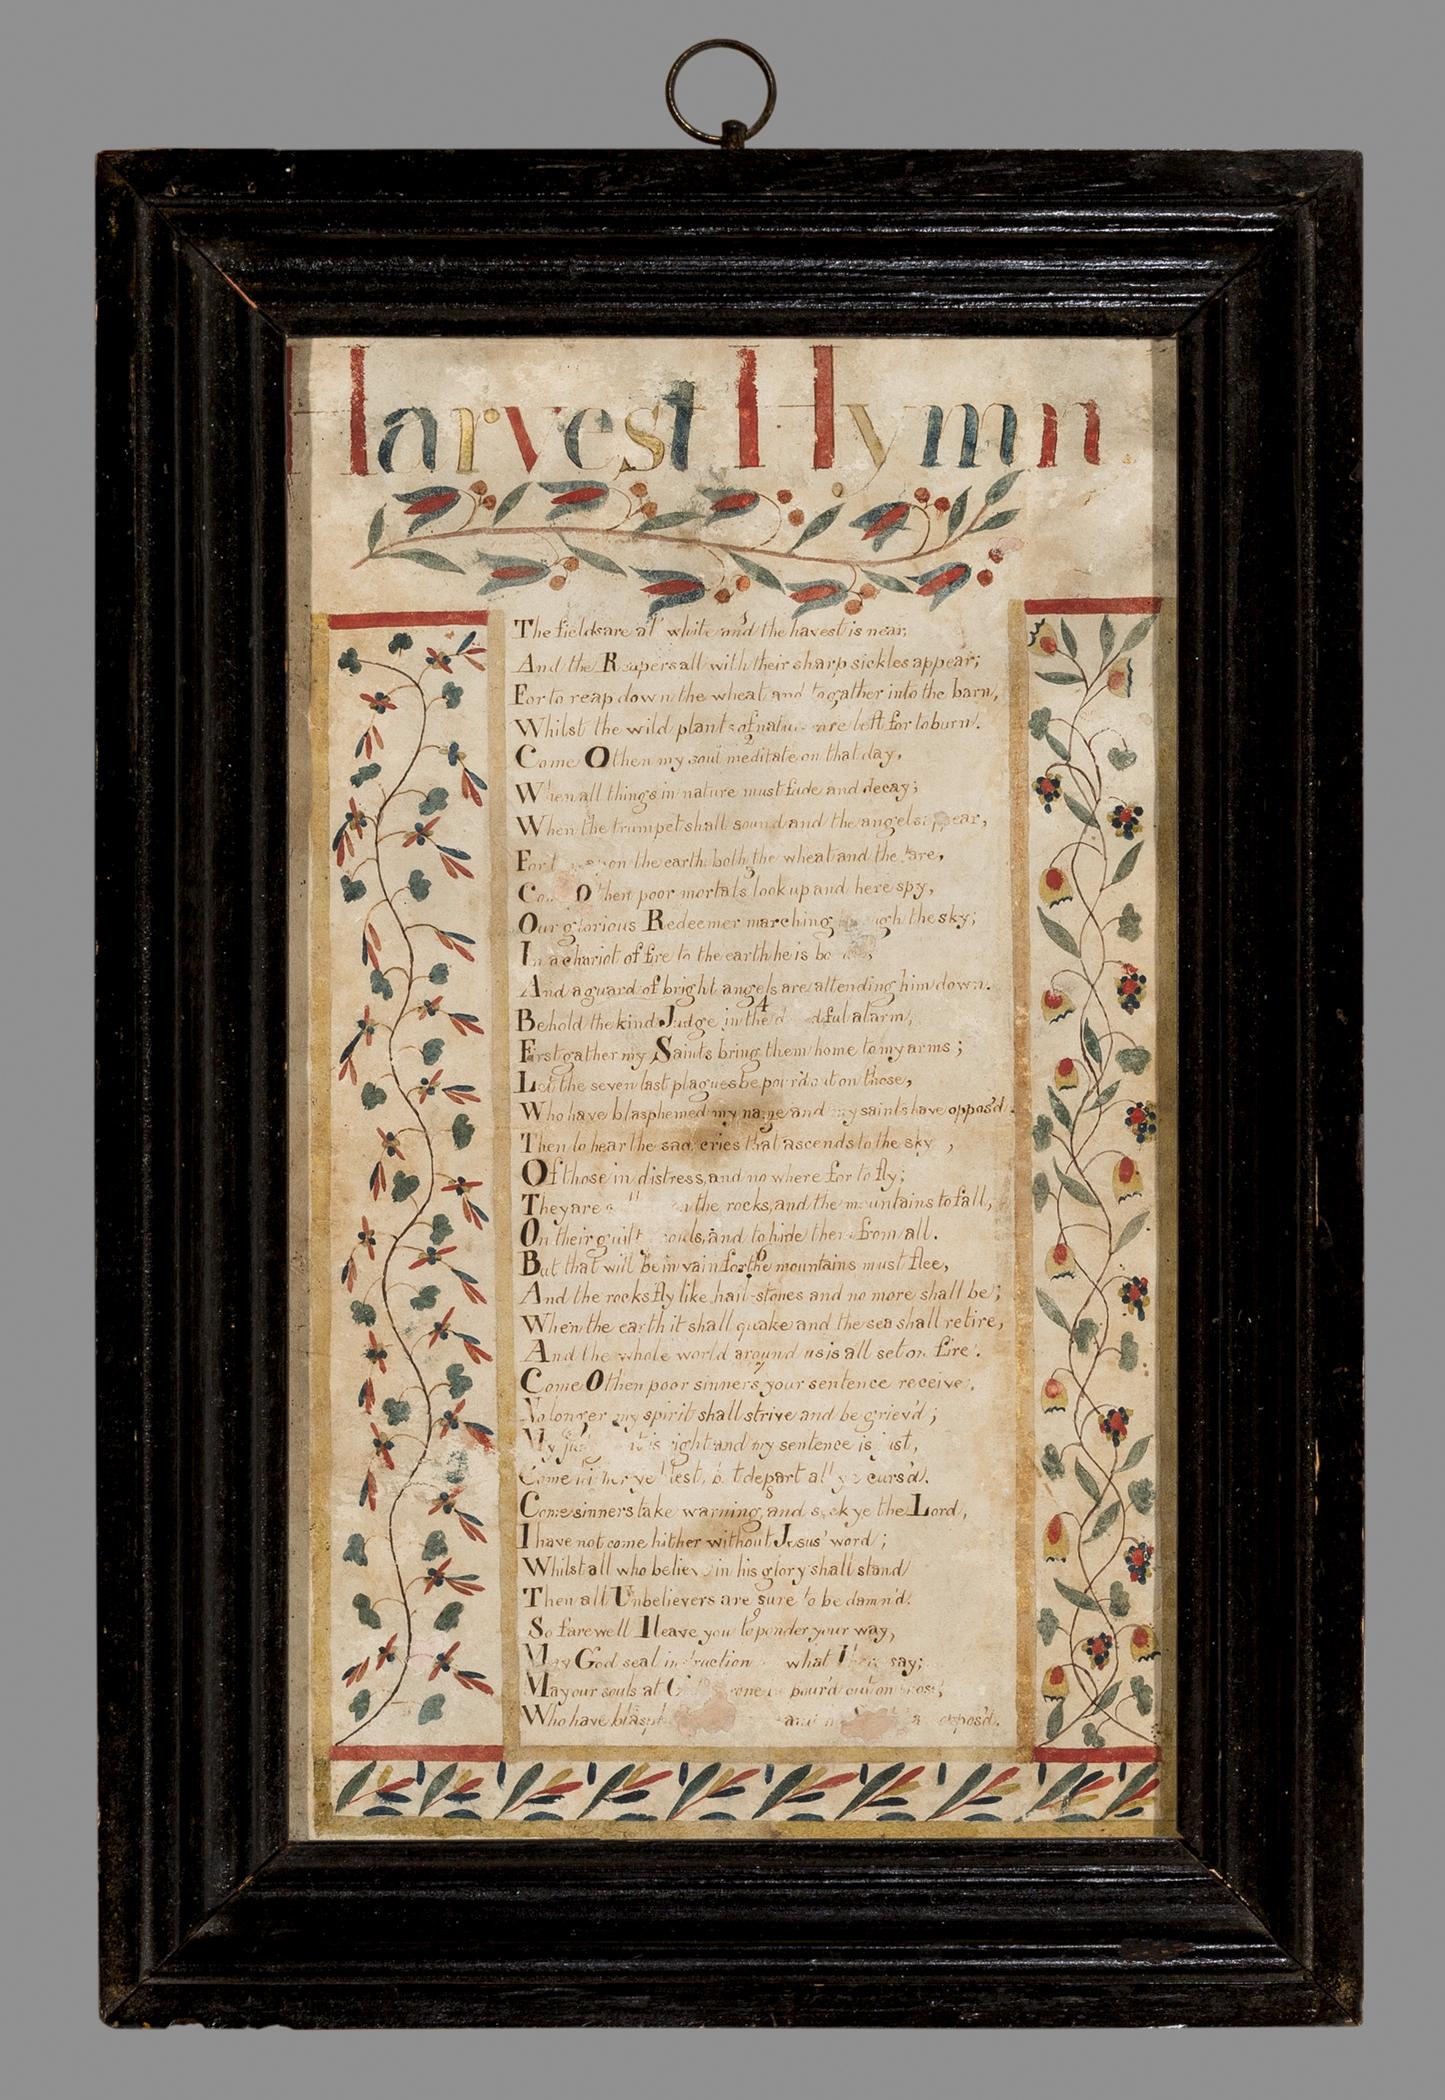 Harvest Hymn.
1
The fields are al white and the havest is near,
And the Reapers all with their sharp sickles appear;
For to reap down the wheat and to gather into the barn,
Whilst the wild plants of are left for to burn.
2
Come O then my soul meditate on that day,
When all things in nature must fade and decay;
When the trumpet shall sound and the angels appear,
on the earth both the wheat and the tare,
3
O then poor mortals look up and here spy,
Our glorious Redeemer marching the sky;
In a chariot of fire to the earth he is
And a guard of bright angels are attending him down.
4
Behold the kind Judge in the alarm,
First gather my Saints bring them home to my arms;
Let the seven last plagues be pour'd out on those,
Who have blasphemed my name and my saints have oppos'd.
5
Then to hear the sad cries that ascends to the sky,
Of those in distress, and no where for to fly;
They are the rocks, and the mountains to fall,
On their guilt souls, and to hide them from all.
6
But that will be in vain for the mountains must flee,
And the rocks fly like hail-stones and no more shall be;
When the earth it shall quake and the sea shall retire,
And the whole world around us is all set on fire.
7
Come O then poor sinners your sentence receive,
No longer my spirit shall strive and be griev'd;
My right and my sentence is just,
Come depart all curs'd.
8
Come sinners take warning, and seek ye the Lord,
I have not come hither without Jesus' word;
Whilst all who believe in his glory shall stand
Then all Unbelievers are sure to be damn'd.
9
So farewell I leave you to ponder your way,
May God seal instruction what I say;
May our souls at pour'd out on those,
Who have oppos'd.